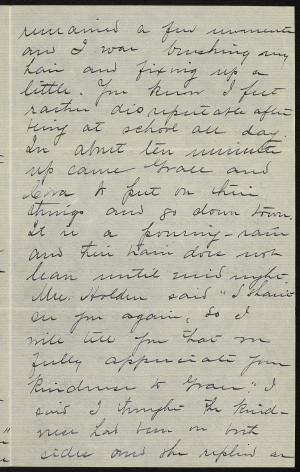 remained a few moments
and I was brushing my
hair and fixing up a
little. You know I feel
rather disreputable after
being at school all day.
In about ten minutes
up came Grace and
Cora to put on their
things and go down town.
It is a pouring-rain
and their train does not
leave until midnight.
Mrs. Holden said "I shan't
see you again, so I
will tell you that we
fully appreciate your
kindness to Grace." I
said I thought the kind-
ness had been on both
sides and she replied as